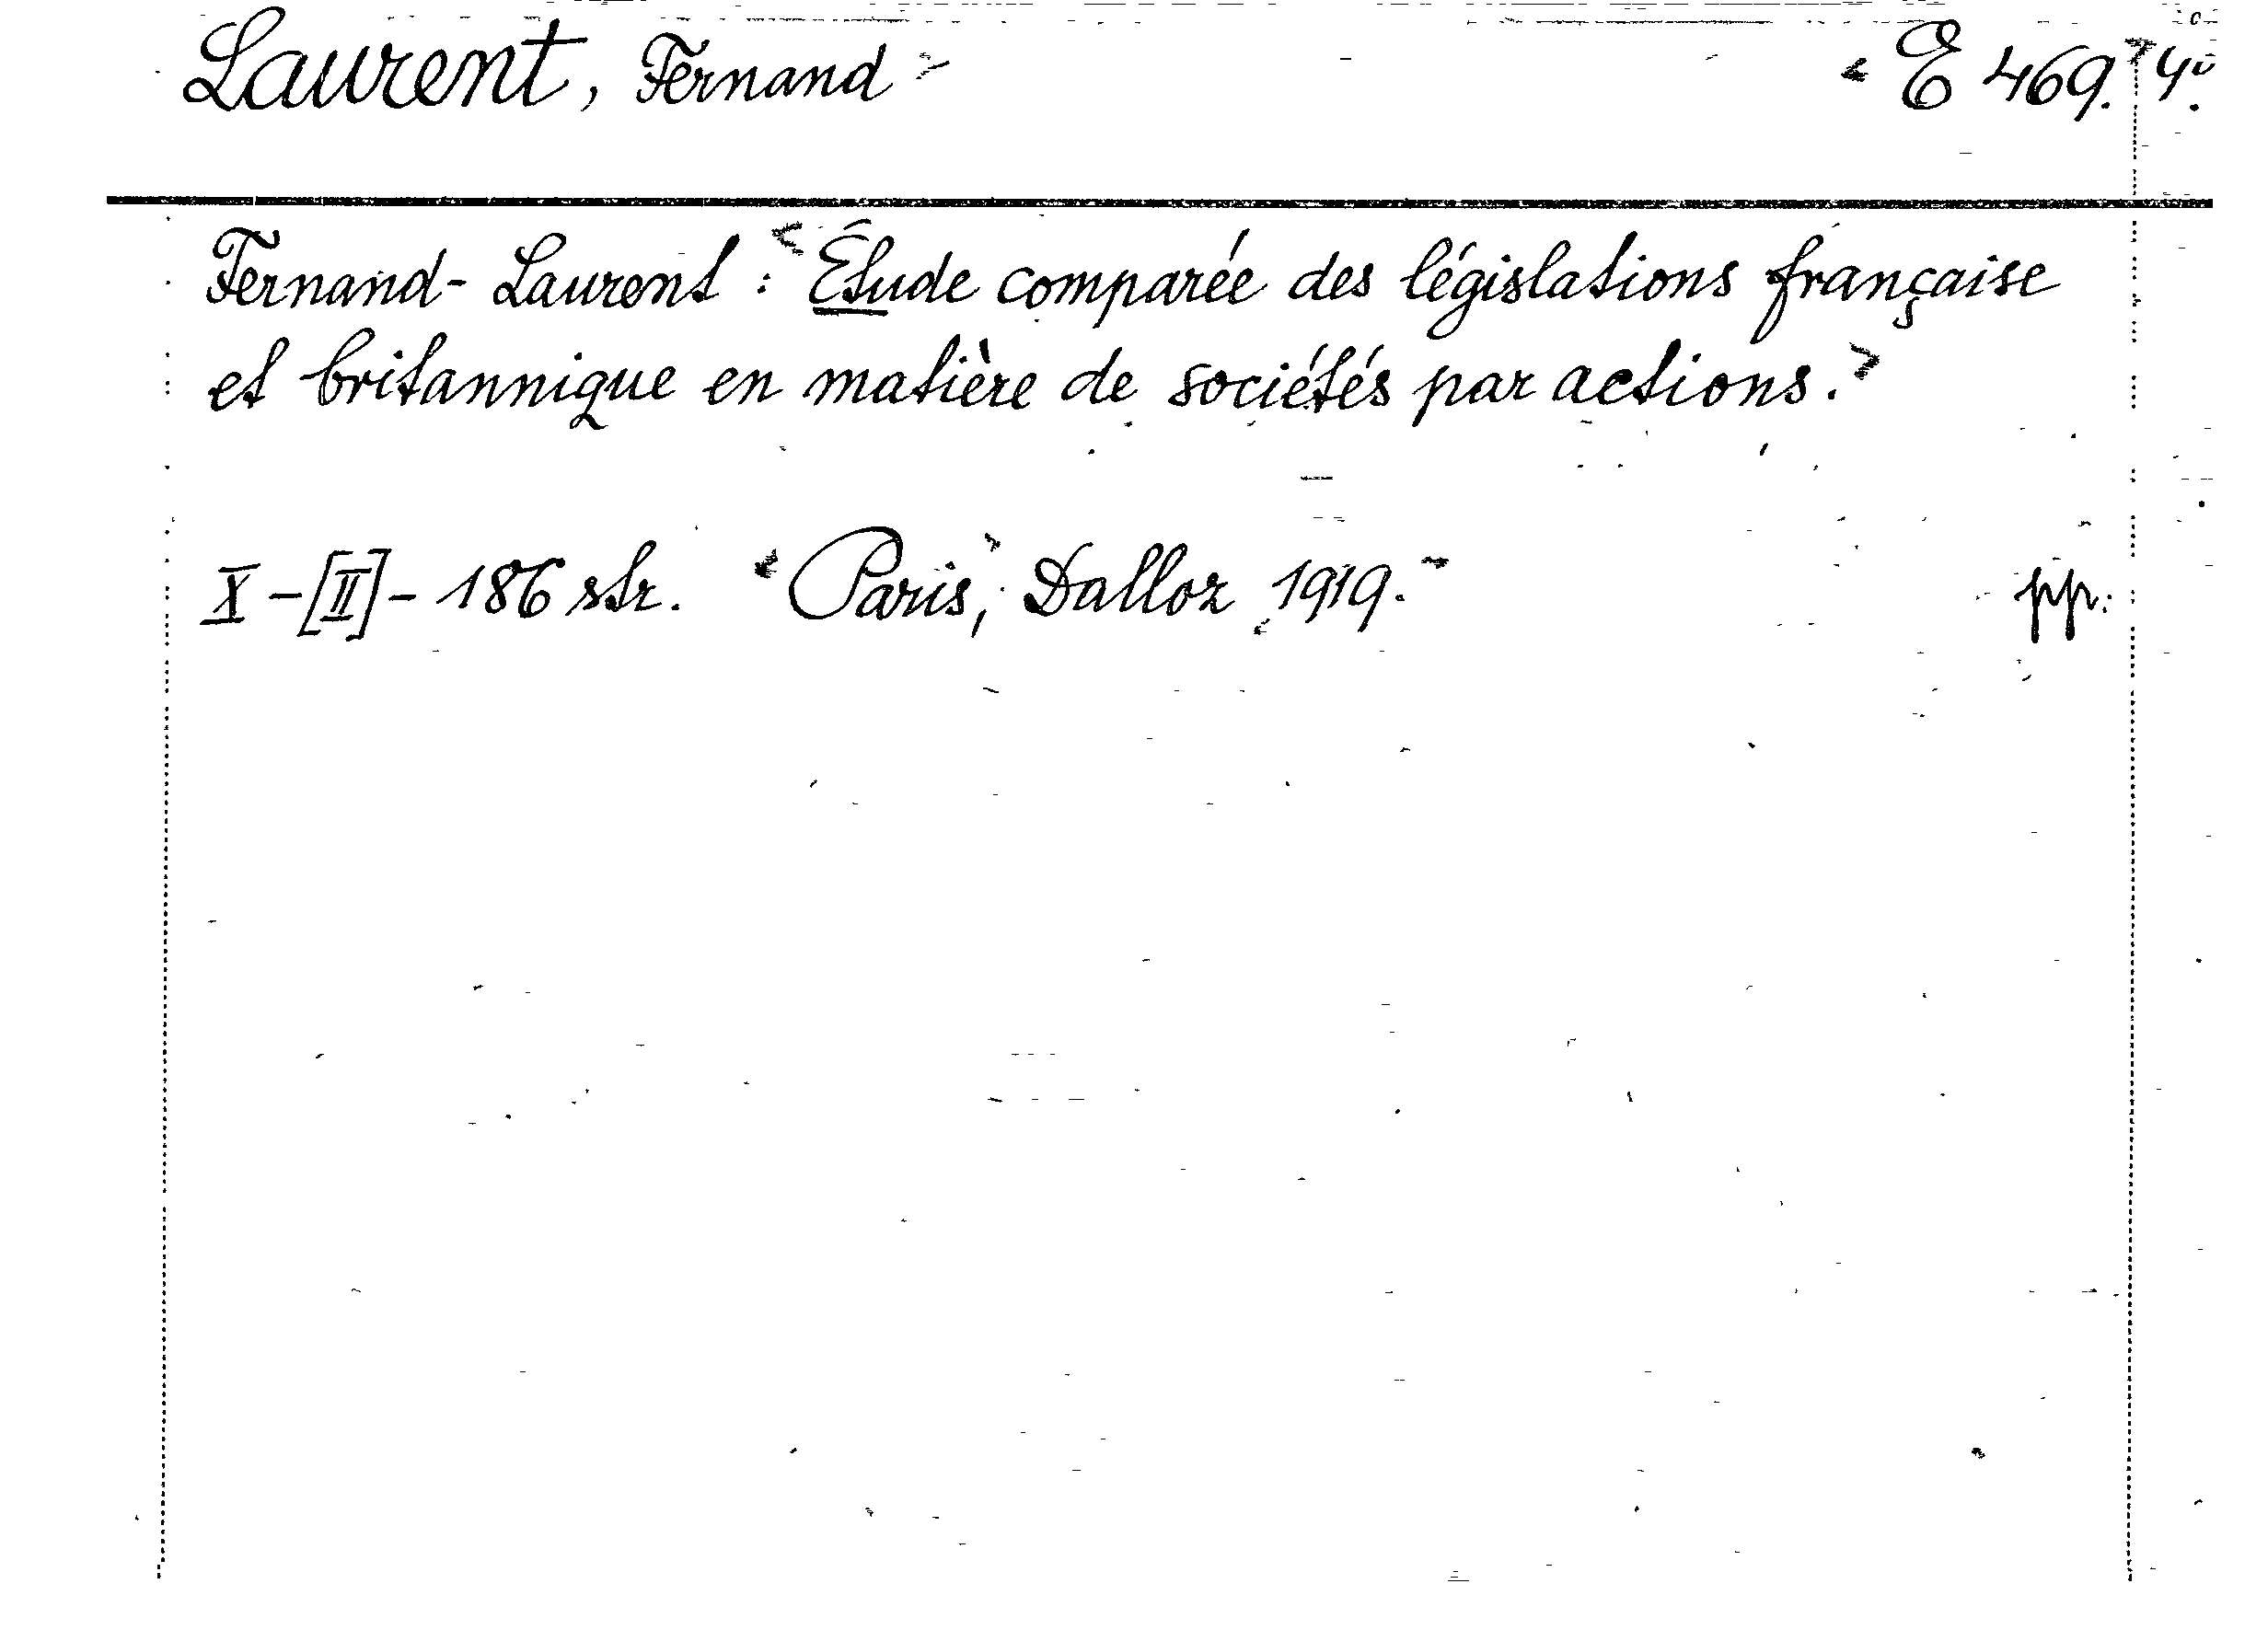 Laurent, Fernand E 469. 4º.
Fernand-Laurent: Étude comparée des législations française
et britannique en matière de sociétés par actions.
X-[II]-186 str. Paris, Dalloz 1919. pp.